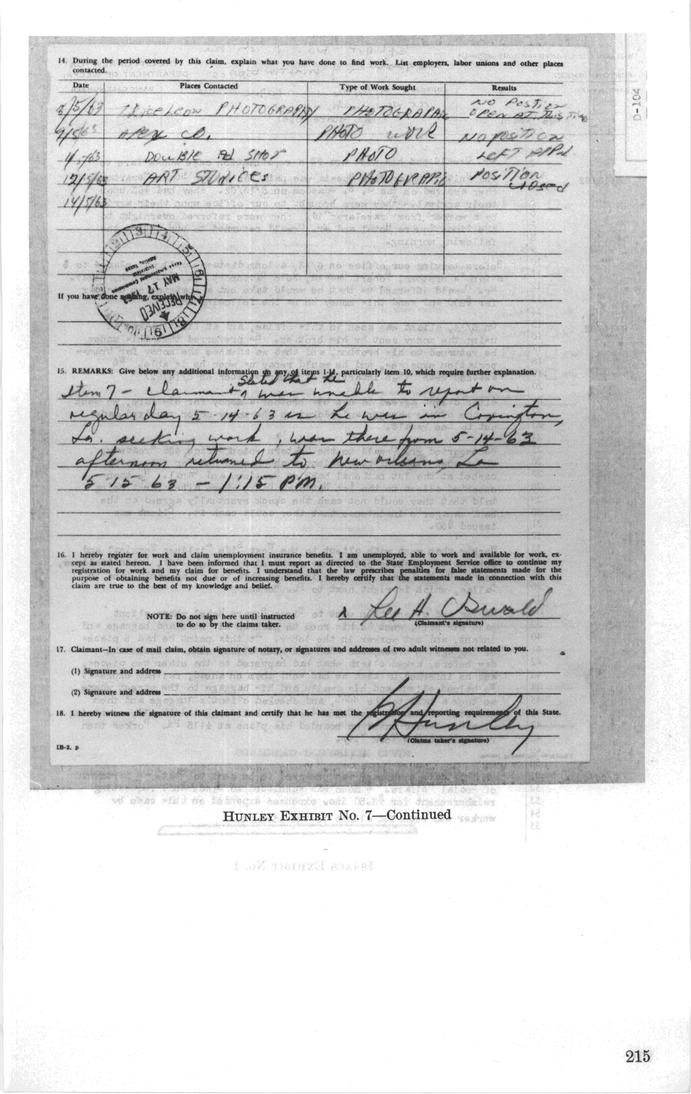 14. During the period covered by this claim, explain what you have done to find work. List employers, labor unions and other places
contacted.
Date Places Contacted Type of Work Sought Results
/5/63 PHOTOGRAPHY PHOTOGRAPHI NO POSTION
OPEN AT THIS TIME
9/5/63 APEX CO. PHOTO WORK NO POSITION
DOUBLE SHOT PHOTO LEFT APPL
12/5/63 ART STUDIOES POSITION
CLOSED
14/5/63
D-104
RECEIVED
MAY 17
If you have done nothing, explain why
15. REMARKS: Give below any additional information on any of items 1-14, particularly item 10, which require further explanation.
stated that he
Item 7 - claimant was unable to report on
regular day 5-14-63 as he was in Covington,
La. seeking work, was there from 5-14-63
afternoon returned to New Orleans, La
5-15 63 - 1:15 PM.
16. I hereby register for work and claim unemployment insurance benefits. I am unemployed, able to work and available for work, ex-
cept as stated hereon. I have been informed that I must report as directed to the State Employment Service office to continue my
registration for work and my claim for benefits. I understand that the law prescribes penalties for false statements made for the
purpose of obtaining benefits not due or of increasing benefits. I hereby certify that the statements made in connection with this
claim are true to the best of my knowledge and belief.
NOTE: Do not sign here until instructed
to do so by the claims taker.
Lee H. Oswald
(Claimant's signature)
17. Claimant—In case of mail claim, obtain signature of notary, or signatures and addresses of two adult witnesses not related to you.
(1) Signature and address
(2) Signature and address
18. I hereby witness the signature of this claimant and certify that he has met the registration and reporting requirements of this State.
Hunley
(Claims taker's signature)
IB-2, p
HUNLEY EXHIBIT No. 7—Continued
215